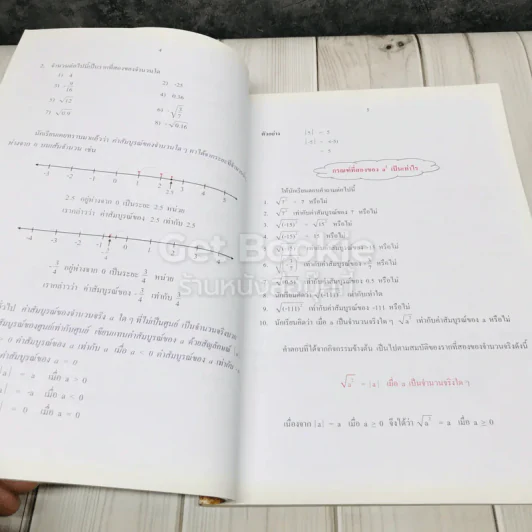 4
2. จำนวนต่อไปนี้เป็นรากที่สองของจำนวนใด
1) 4
2) -25
4) 0.36
นักเรียนเคยทราบมาแล้วว่า ค่าสัมบูรณ์ของจำนวนใด ๆ หาได้จากระยะที่
ห่างจาก 0 บนเส้นจำนวน เช่น
-4 -3 -2 -1 0 1 2 2.5 3 4 5
2.5 อยู่ห่างจาก 0 เป็นระยะ 2.5 หน่วย
เรากล่าวว่า ค่าสัมบูรณ์ของ 2.5 เท่ากับ 2.5
-4 -3 -2 -1 0 1 2 3 4 5
อยู่ห่างจาก 0 เป็นระยะ 3/4 หน่วย
เรากล่าวว่า ค่าสัมบูรณ์ของ -3/4 เท่ากับ 3/4
ค่าสัมบูรณ์ของจำนวนจริง a ใด ๆ ที่ไม่เป็นศูนย์ เป็นจำนวนจริงบวก
สัมบูรณ์ของศูนย์เท่ากับศูนย์ เขียนแทนค่าสัมบูรณ์ของ a ด้วยสัญลักษณ์
ค่าสัมบูรณ์ของ a เท่ากับ a เมื่อ a < 0 ค่าสัมบูรณ์ของ a เท่ากับ
ค่าสัมบูรณ์ของ a = 0
|a| = a เมื่อ a > 0
เมื่อ a < 0
= 0 เมื่อ a = 0
5
ตัวอย่าง |5| = 5
= 5
กรณฑ์ที่สองของ a² เป็นเท่าไร
ให้นักเรียนตอบคำถามต่อไปนี้
1. √5² = 5 หรือไม่
2. เท่ากับค่าสัมบูรณ์ของ 5 หรือไม่
3. √(-15)² = √15² หรือไม่
4. √(-15)² = 15 หรือไม่
5. √(-15)² เท่ากับค่าสัมบูรณ์ของ -15 หรือไม่
6. เท่ากับค่าสัมบูรณ์ของ หรือไม่
7. เท่ากับค่าสัมบูรณ์ของ 0.5 หรือไม่
8. นักเรียนคิดว่า √(-11)² เท่ากับเท่าใด
9. √(-111)² เท่ากับค่าสัมบูรณ์ของ -111 หรือไม่
10. นักเรียนคิดว่า เมื่อ a เป็นจำนวนจริงใด ๆ √a² เท่ากับค่าสัมบูรณ์ของ a หรือไม่
คำตอบที่ได้จากกิจกรรมข้างต้น เป็นไปตามสมบัติของรากที่สองของจำนวนจริงดังนี้
√a² = |a| เมื่อ a เป็นจำนวนจริงใด ๆ
เนื่องจาก |a| = a เมื่อ a ≥ 0 จึงได้ว่า √a² = a เมื่อ a ≥ 0
Get Bookie
ร้านหนังสือเก็ทบุ๊คกี้